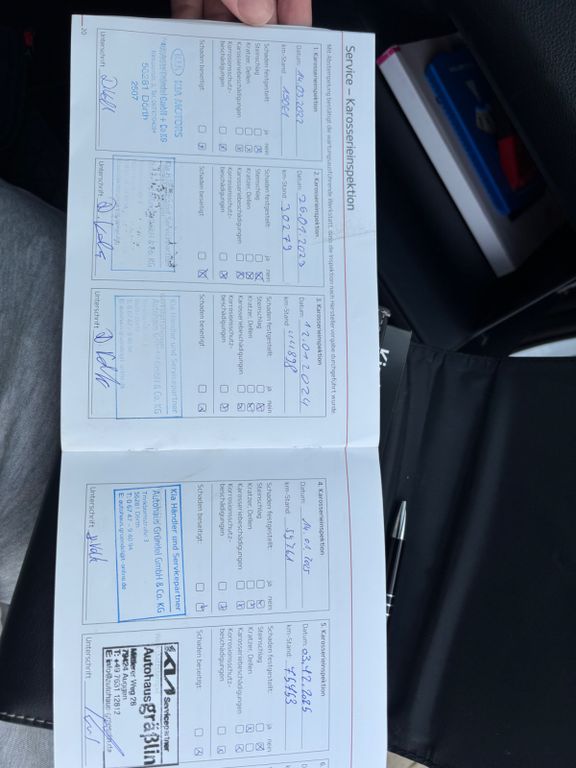 Service – Karosserieinspektion
Mit Abstempelung bestätigt die wartungsausführende Werkstatt, dass die Inspektion nach Herstellervorgabe durchgeführt wurde
1. Karosserieinspektion
Datum: 14.03.2022
km-Stand: 15061
Schaden festgestellt: ja nein
Steinschlag
Kratzer, Dellen
Karosseriebeschädigungen
Korrosionsschutz-
beschädigungen
Schaden beseitigt:
KIA MOTORS
56281 Dörth
Unterschrift
2. Karosserieinspektion
Datum: 26.01.2023
km-Stand: 30279
Schaden festgestellt: ja nein
Steinschlag
Kratzer, Dellen
Karosseriebeschädigungen
Korrosionsschutz-
beschädigungen
Schaden beseitigt:
Unterschrift
3. Karosserieinspektion
Datum: 12.01.2024
km-Stand: 44898
Schaden festgestellt: ja nein
Steinschlag
Kratzer, Dellen
Karosseriebeschädigungen
Korrosionsschutz-
beschädigungen
Schaden beseitigt:
Kia Händler und Servicepartner
GmbH & Co. KG
Unterschrift
20
4. Karosserieinspektion
Datum: 14.01.2025
km-Stand: 59761
Schaden festgestellt: ja nein
Steinschlag
Kratzer, Dellen
Karosseriebeschädigungen
Korrosionsschutz-
beschädigungen
Schaden beseitigt:
Kia Händler und Servicepartner
Autohaus Gründel GmbH & Co. KG
56281 Dörth
Unterschrift
5. Karosserieinspektion
Datum: 03.12.2025
km-Stand: 75753
Schaden festgestellt: ja nein
Steinschlag
Kratzer, Dellen
Karosseriebeschädigungen
Korrosionsschutz-
beschädigungen
Schaden beseitigt:
KIA Servicepartner
Autohaus gräßlin
Müllheimer Weg 28
79424 Auggen
T: +49 7631 12812
Unterschrift
6.